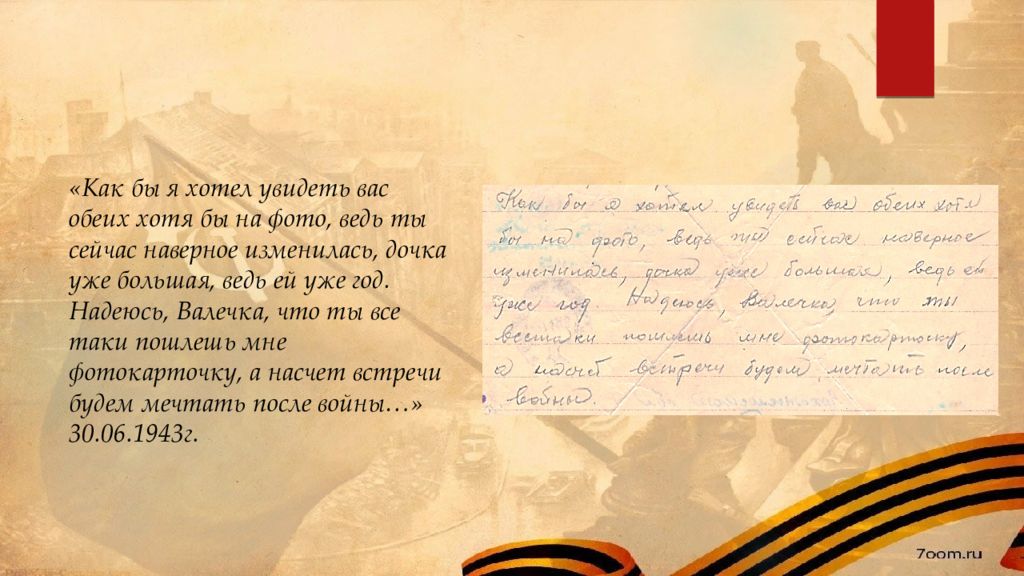 «Как бы я хотел увидеть вас
обеих хотя бы на фото, ведь ты
сейчас наверное изменилась, дочка
уже большая, ведь ей уже год.
Надеюсь, Валечка, что ты все
таки пошлешь мне
фотокарточку, а насчет встречи
будем мечтать после войны…»
30.06.1943г.
Как бы я хотел увидеть вас обеих хотя
бы на фото, ведь ты сейчас наверное
изменилась, дочка уже большая, ведь ей
уже год. Надеюсь, Валечка, что ты
всетаки пошлешь мне фотокарточку,
а насчет встречи будем мечтать после
войны.
7oom.ru